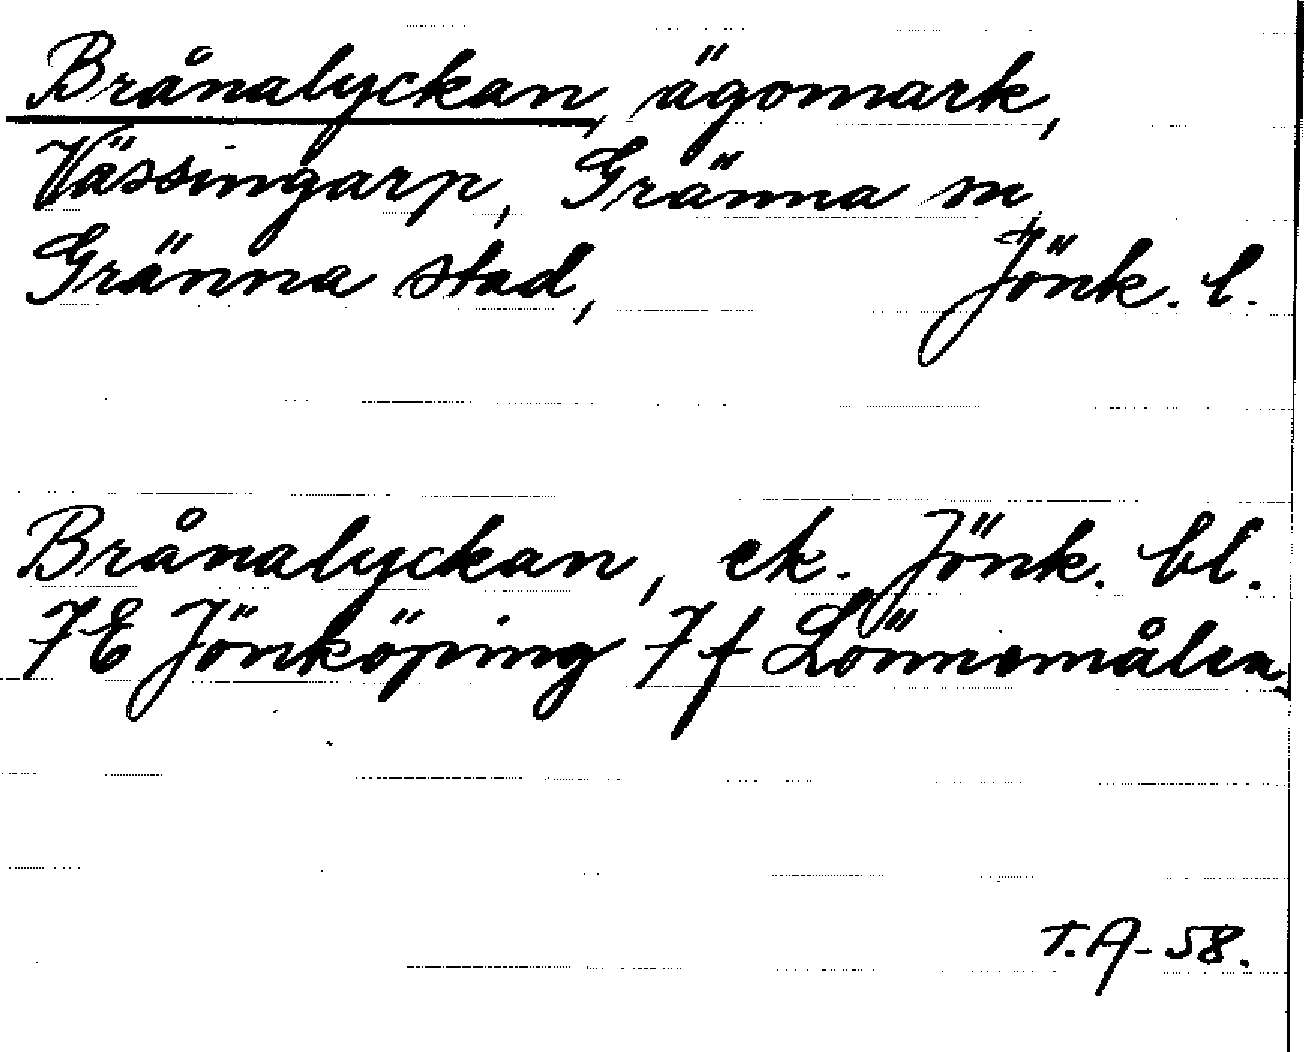 Brånalyckan, ägomark,
Vässingarp, Gränna sn
Gränna stad, Jönk. l.
Brånalyckan, ek. Jönk. bl.
7E Jönköping 7f Lönnemålen.
T.A-58.